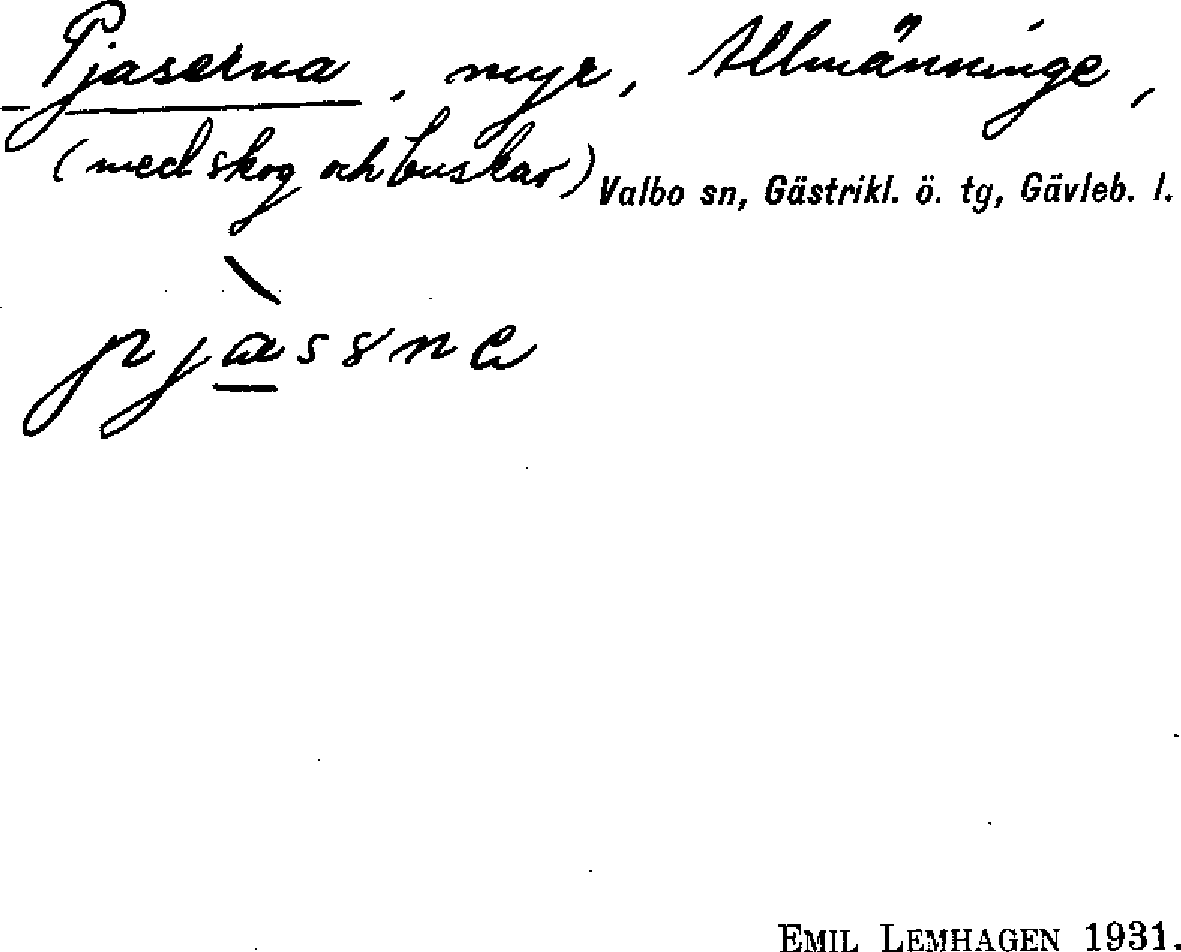 Pjaserna, myr, Allmänninge,
(med skog och buskar) Valbo sn, Gästrikl. ö. tg, Gävleb. l.
pjàssna
EMIL LEMHAGEN 1931.